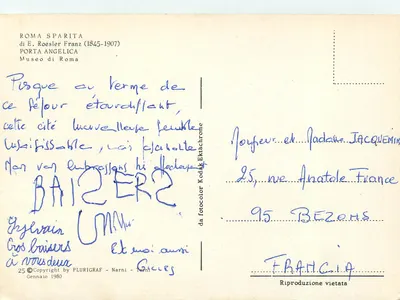 ROMA SPARITA
di E. Roesler Franz (1845-1907)
PORTA ANGELICA
Museo di Roma
Presque au terme de
ce séjour étourdissant,
cette cité merveilleuse semble
mais
Nous vous embrassons
BAISERS
Sylvain
Gros baisers
à vous deux
Et moi aussi
Gilles
25 © Copyright by PLURIGRAF - Narni -
Gennaio 1980
da fotocolor Kodak Ektachrome
Monsieur et Madame JACQUEMIN
25, rue Anatole France
95 BEZONS
FRANCIA
Riproduzione vietata